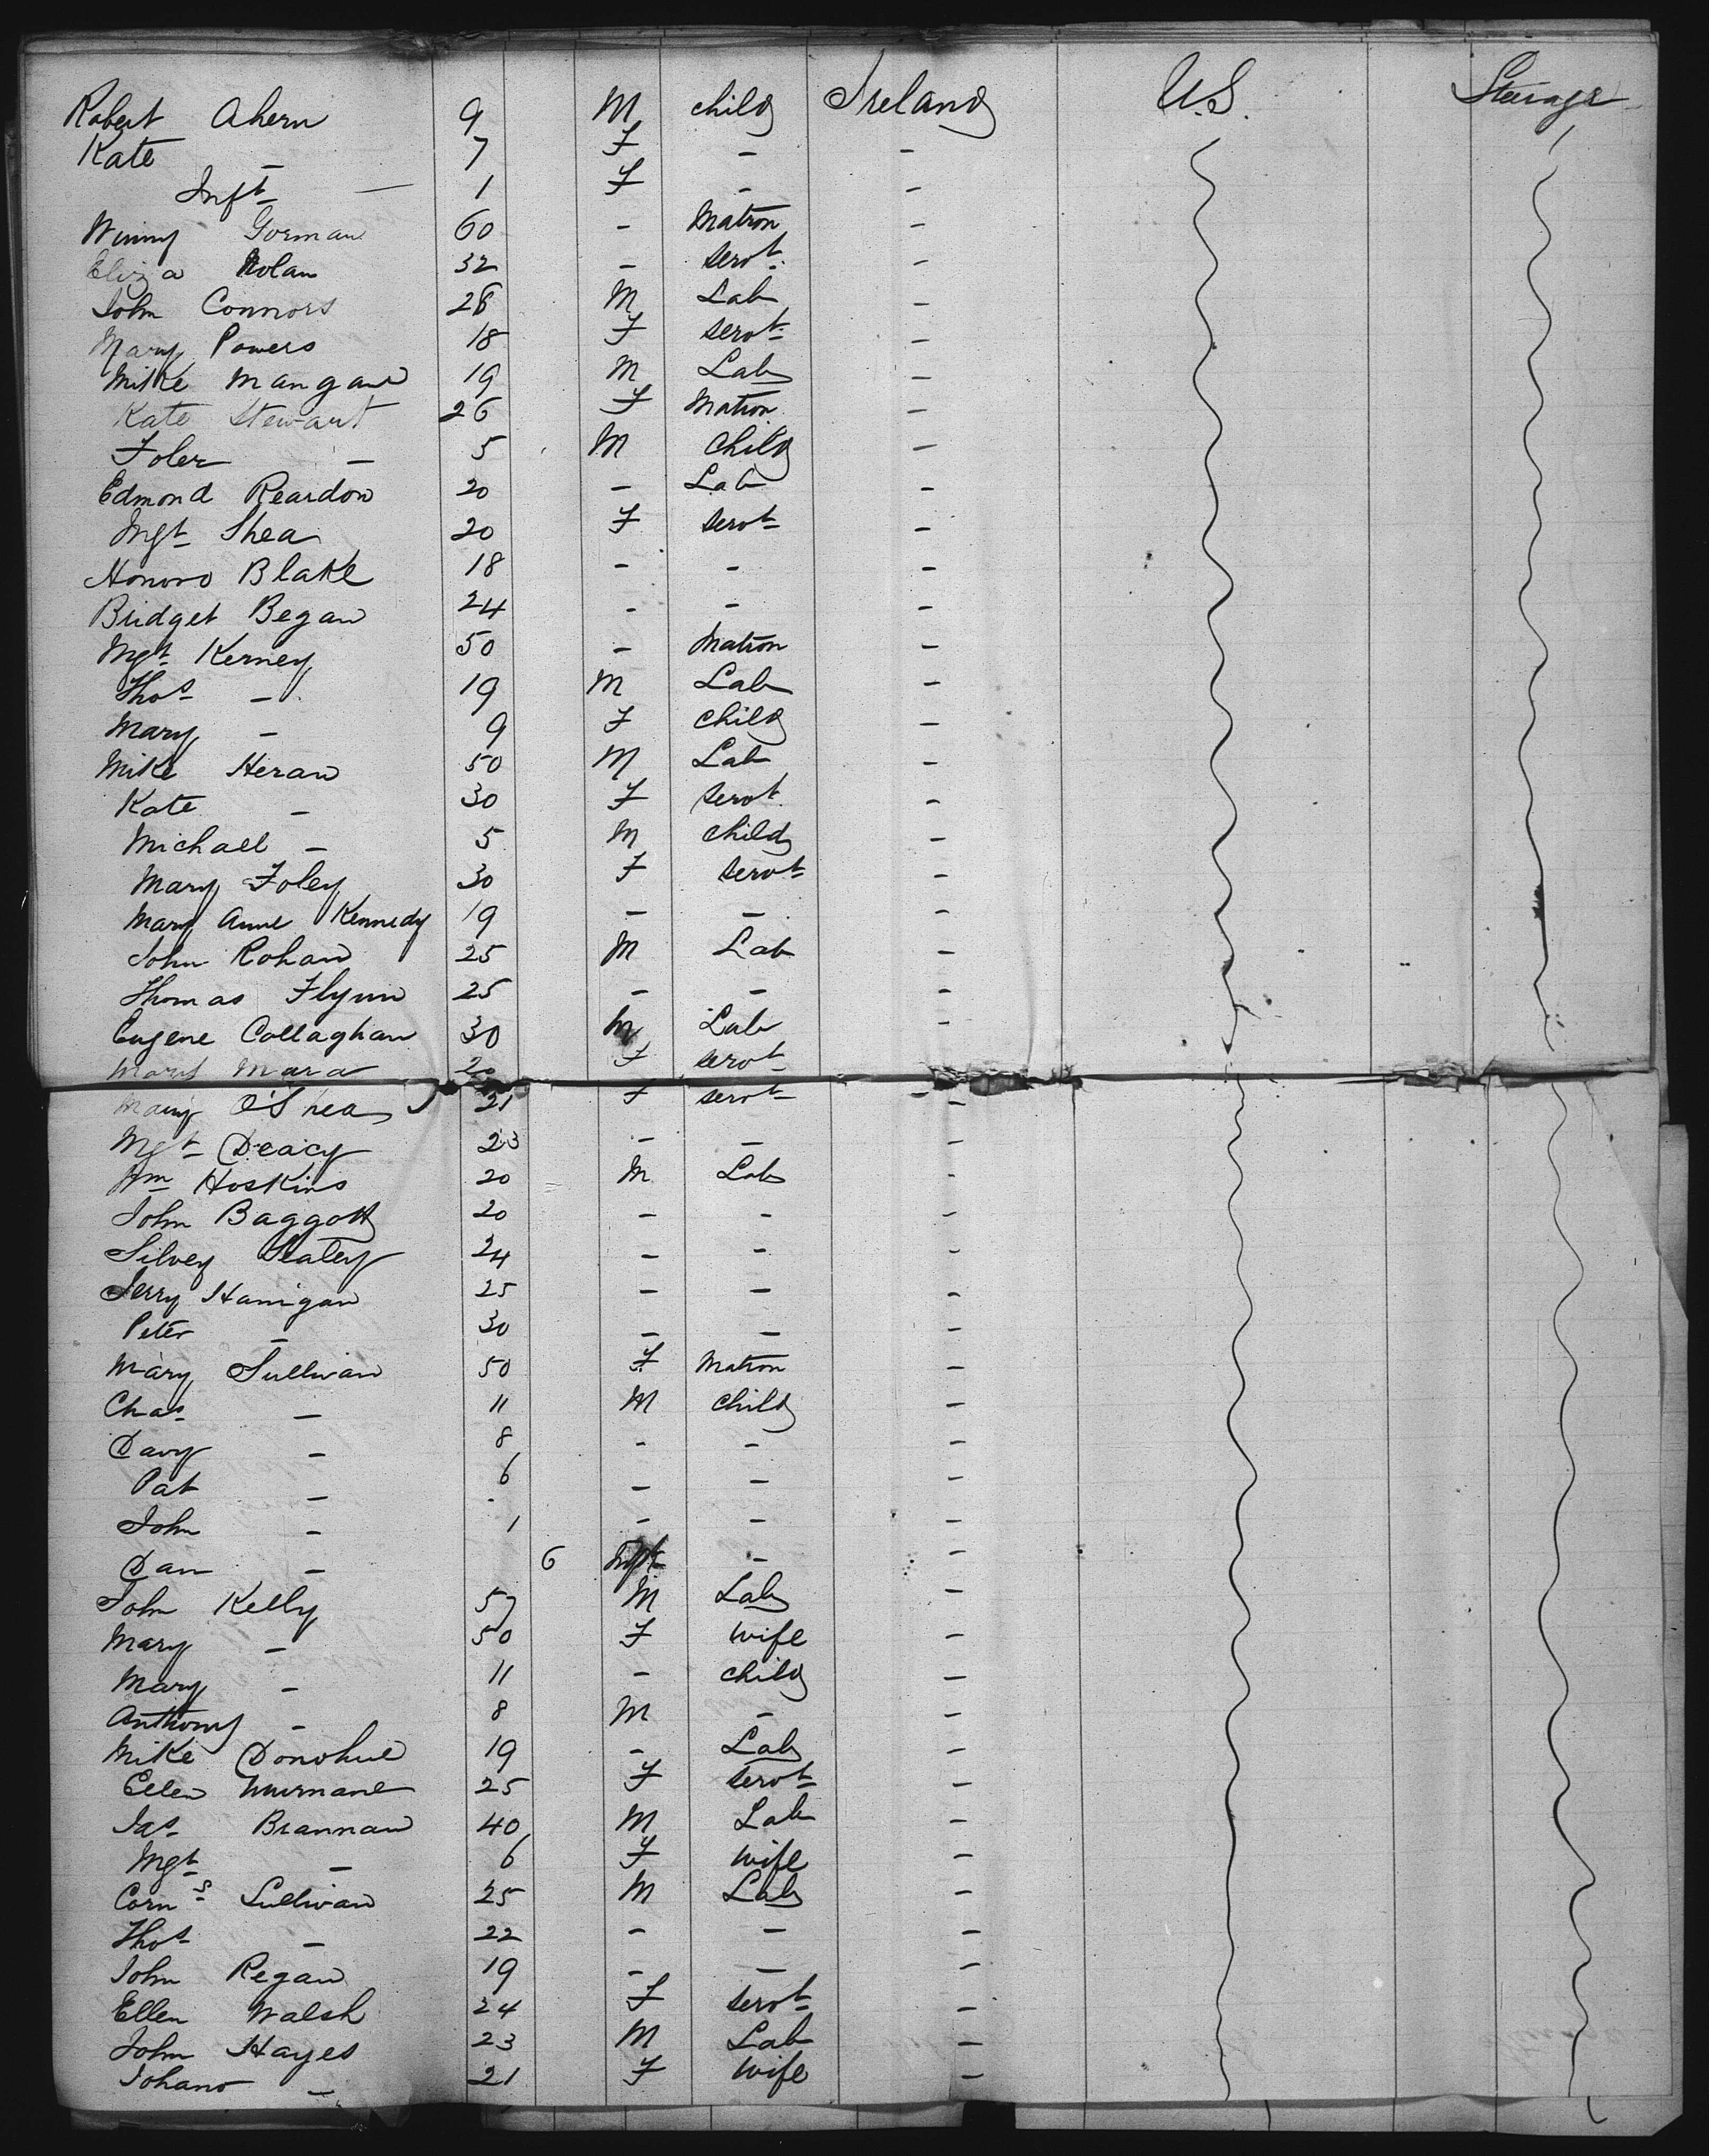 Robert Ahern 9 M child Ireland U.S. Steerage
Kate — 7 F — —
Inft — 1 F — —
Winny Gorman 60 — Matron —
Eliza Nolan 32 — Servt —
John Connors 28 M Lab —
Mary Powers 18 F Servt —
Mike Mangan 19 M Lab —
Kate Stewart 26 F Matron —
— 5 M Child —
Edmond Reardon 20 — Lab —
Mgt Shea 20 F Servt —
Honoro Blake 18 — — —
Bridget Began 24 — — —
Mgt Kerney 50 — Matron —
Thos — 19 M Lab —
Mary — 9 F Child —
Mike Heran 50 M Lab —
Kate — 30 F Servt —
Michael — 5 M Child —
Mary Foley 30 F Servt —
Mary Anne Kennedy 19 — — —
John Rohan 25 M Lab —
Thomas Flynn 25 — — —
Eugene Collaghan 30 M Lab —
Mary Mara 20 F Servt
Mary O'Shea 21 F Servt —
Mgt Deacy 23 — — —
Wm Hoskins 20 M Lab —
John Baggott 20 — — —
Silvey 24 — — —
Jerry Hanigan 25 — — —
Peter — 30 — — —
Mary Sullivan 50 F Matron —
Chas — 11 M Child —
Davy — 8 — — —
Pat — 6 — — —
John — 1 — — —
Dan — 6 Inft — —
John Kelly 57 M Lab —
Mary — 50 F Wife —
Mary — 11 — Child —
Anthony — 8 M — —
Mike Donohue 19 — Lab —
Ellen Murnane 25 F Servt —
Jas Brannan 40 M Lab —
Mgt — 6 F Wife —
Corns Sullivan 25 M Lab —
Thos — 22 — — —
John Regan 19 — — —
Ellen Walsh 24 F Servt —
John Hayes 23 M Lab —
Johano — 21 F Wife —